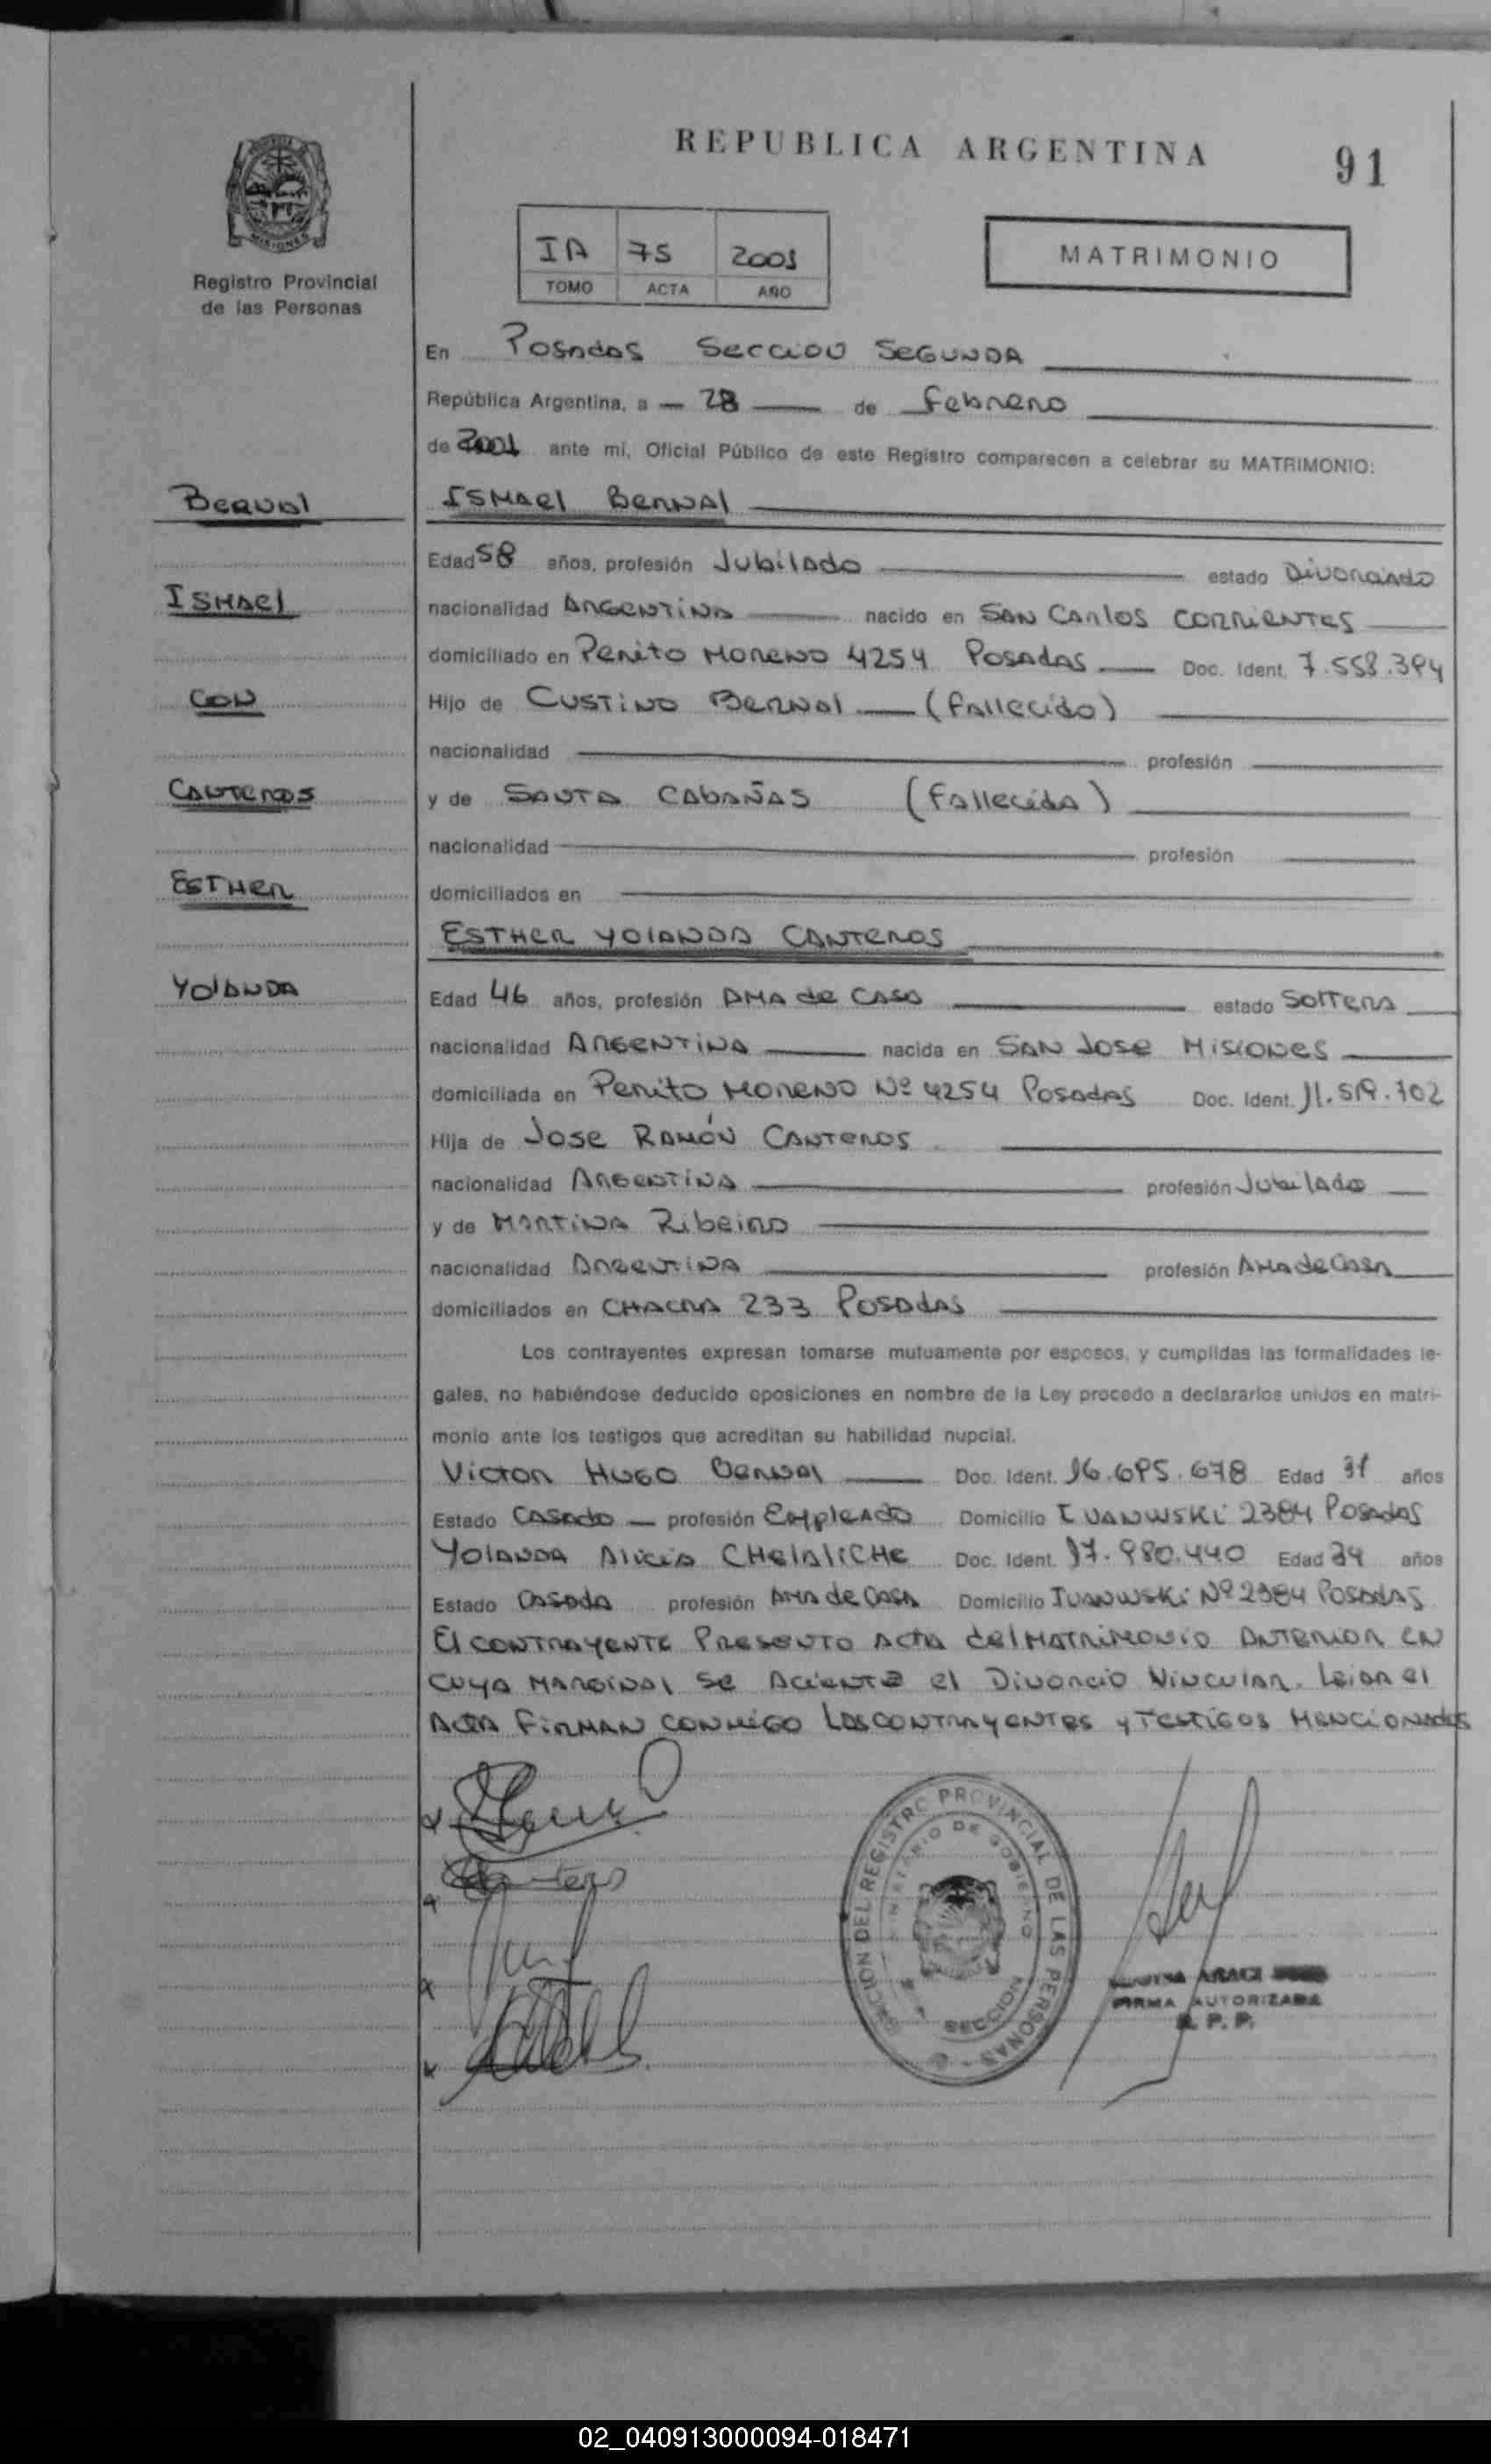 REPUBLICA ARGENTINA
91
MISIONES
Registro Provincial
de las Personas
IA 75 2001
TOMO ACTA AÑO
MATRIMONIO
En Posadas Seccion Segunda
República Argentina, a 28 de Febrero
de 2001 ante mí, Oficial Público de este Registro comparecen a celebrar su MATRIMONIO:
Bernal
Ismael Bernal
Edad 58 años, profesión Jubilado estado Divorciado
Ismael
nacionalidad Argentina nacido en San Carlos Corrientes
domiciliado en Perito Moreno 4254 Posadas Doc. Ident. 7.558.394
Con
Hijo de Custino Bernal (fallecido)
nacionalidad profesión
Canteros
y de Santa Cabañas (fallecida)
nacionalidad profesión
Esther
domiciliados en
Esther Yolanda Canteros
Yolanda
Edad 46 años, profesión Ama de Casa estado Soltera
nacionalidad Argentina nacida en San Jose Misiones
domiciliada en Perito Moreno Nº 4254 Posadas Doc. Ident. 11.519.702
Hija de Jose Ramón Canteros
nacionalidad Argentina profesión Jubilado
y de Martina Ribeiro
nacionalidad Argentina profesión Ama de Casa
domiciliados en Chacra 233 Posadas
Los contrayentes expresan tomarse mutuamente por esposos, y cumplidas las formalidades le-
gales, no habiéndose deducido oposiciones en nombre de la Ley procedo a declararlos unidos en matri-
monio ante los testigos que acreditan su habilidad nupcial.
Victor Hugo Bernal Doc. Ident. 16.695.678 Edad 31 años
Estado Casado profesión Empleado Domicilio Ivanwski 2384 Posadas
Yolanda Alicia Chelaliche Doc. Ident. 17.980.440 Edad 34 años
Estado Casada profesión Ama de Casa Domicilio Ivanwski Nº 2384 Posadas
El contrayente presento acta del matrimonio anterior en
cuya marginal se acienta el Divorcio Vincular. Leian el
acta firman conmigo los contrayentes y testigos mencionados
REGISTRO PROVINCIAL DE LAS PERSONAS
MINISTERIO DE GOBIERNO
SECCION
ARACI
FIRMA AUTORIZADA
R. P. P.
02_040913000094-018471